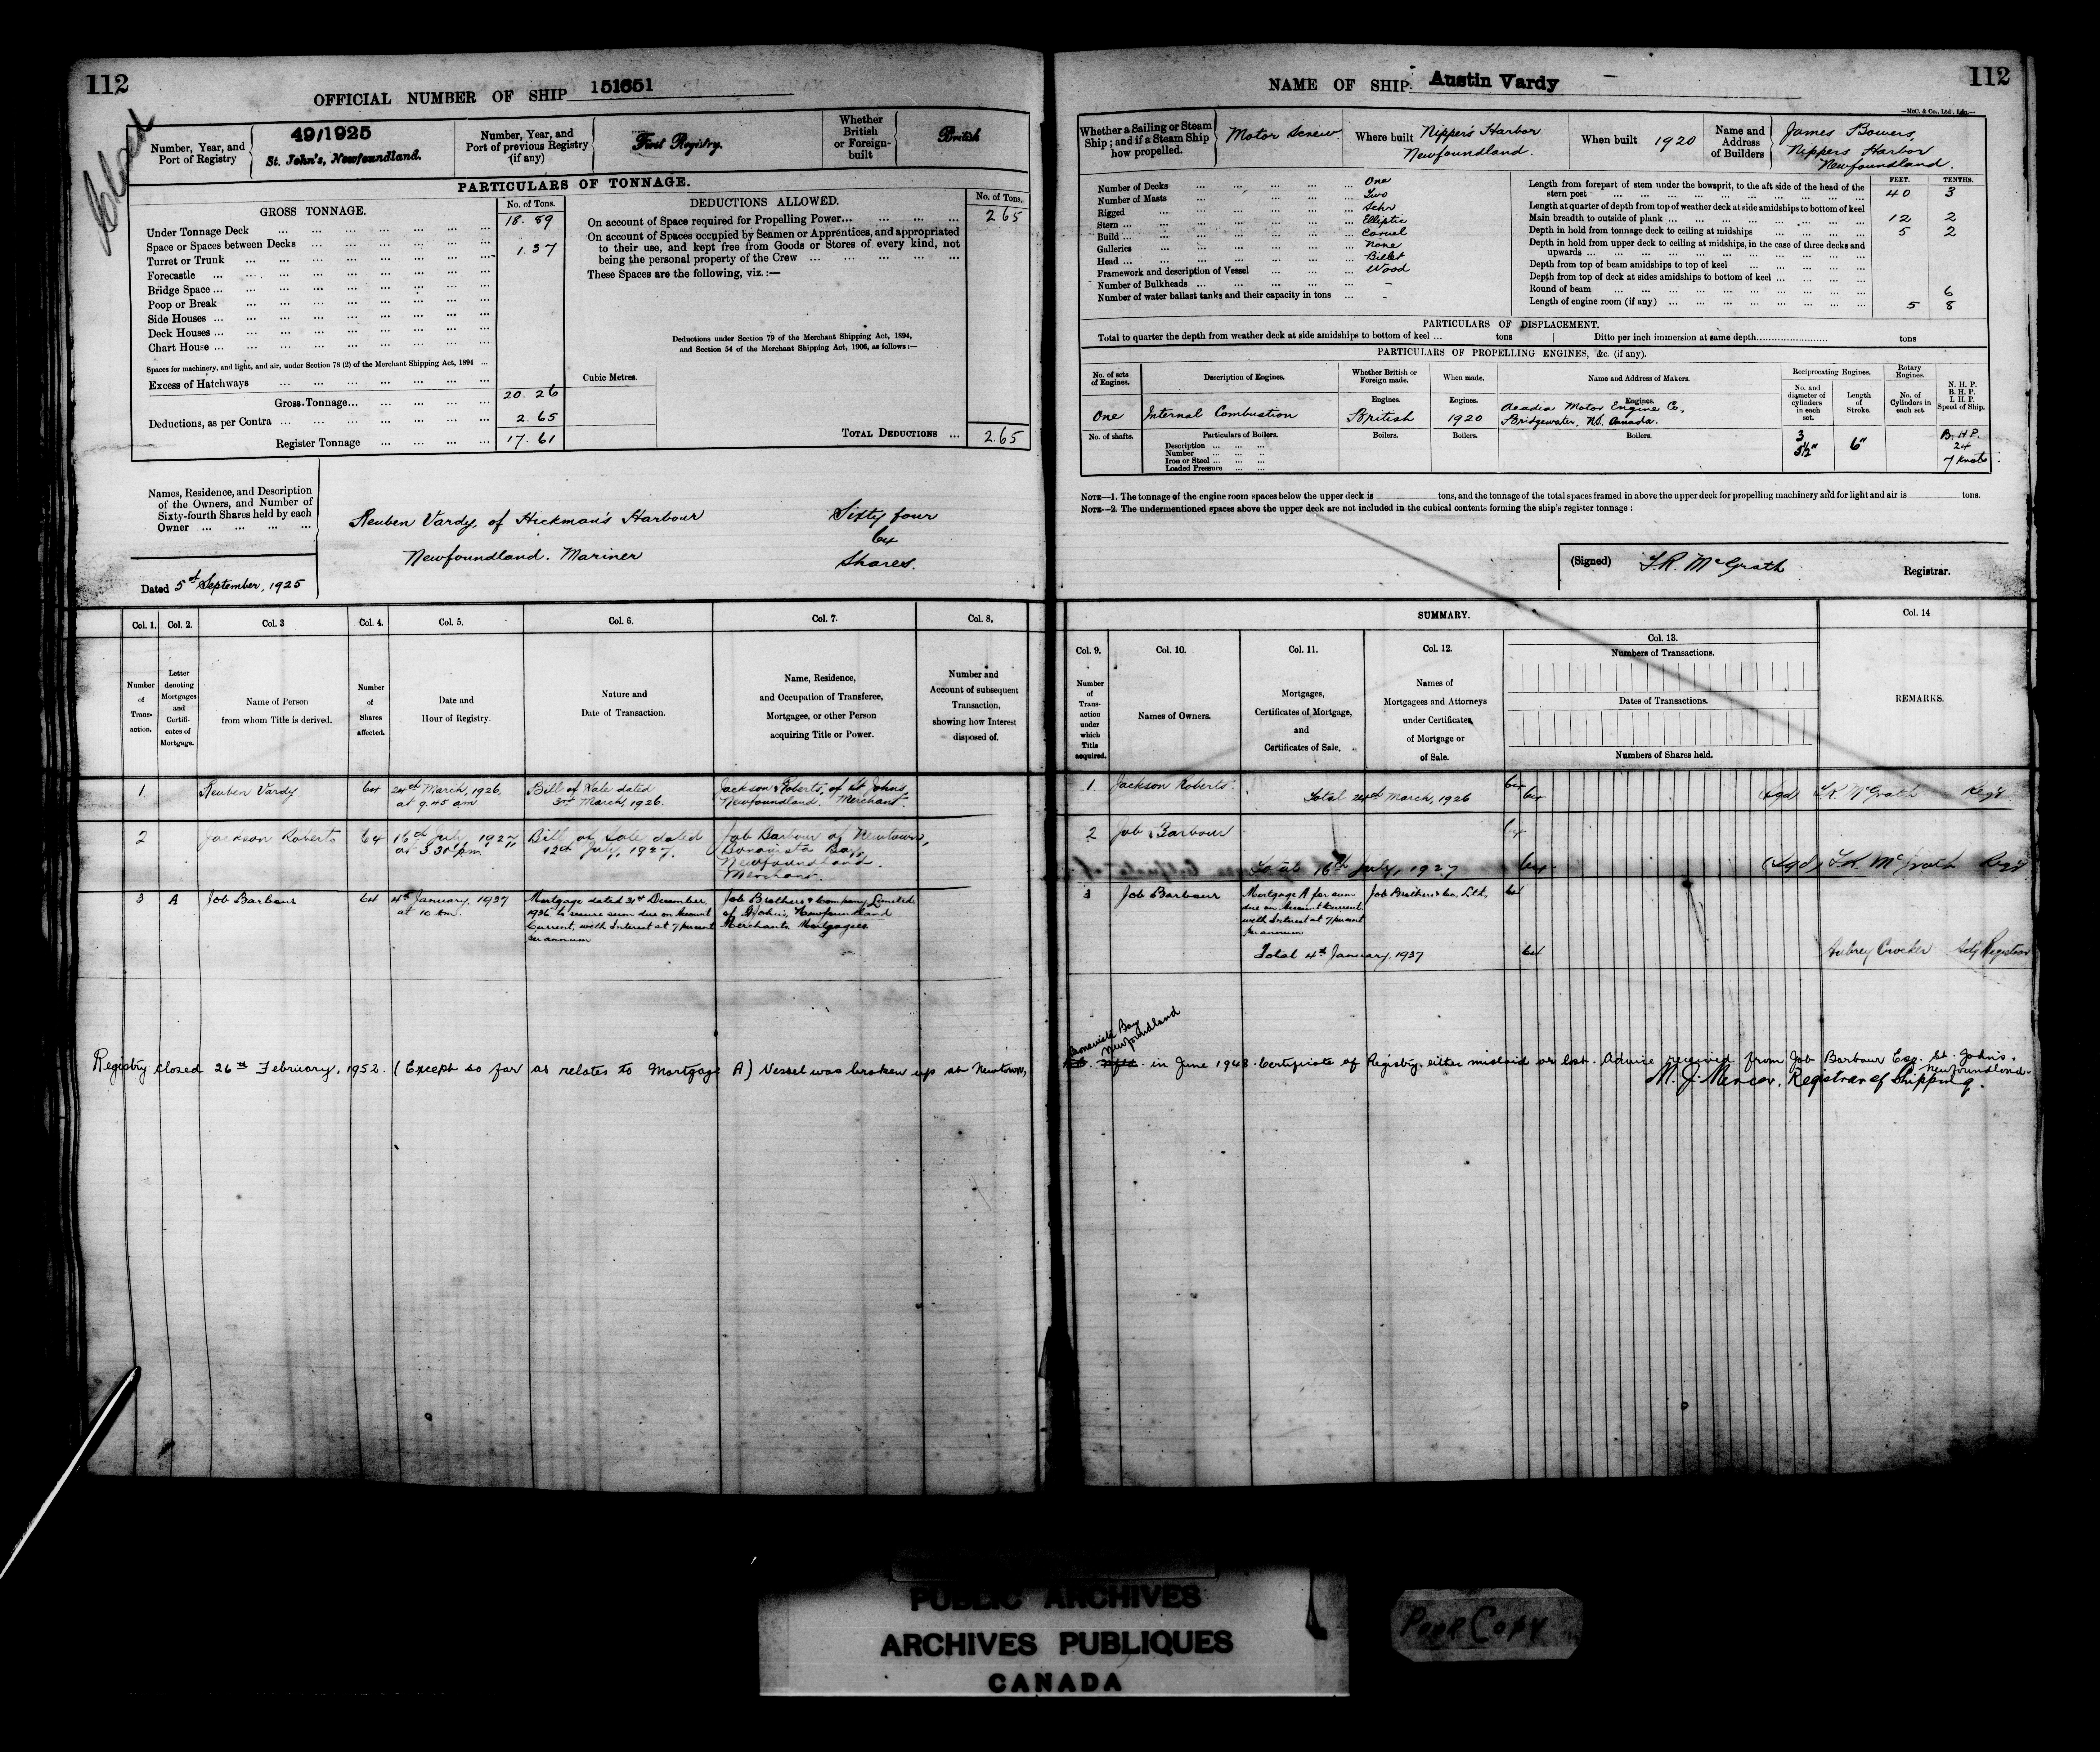 112
OFFICIAL NUMBER OF SHIP 151651
Closed
Number, Year, and Port of Registry
49/1925
St. John's, Newfoundland.
Number, Year, and Port of previous Registry (if any)
First Registry.
Whether British or Foreign-built
British
PARTICULARS OF TONNAGE.
GROSS TONNAGE.
No. of Tons.
Under Tonnage Deck ... 18. 89
Space or Spaces between Decks ...
Turret or Trunk ... 1.37
Forecastle ...
Bridge Space ...
Poop or Break ...
Side Houses ...
Deck Houses ...
Chart House ...
Spaces for machinery, and light, and air, under Section 78 (2) of the Merchant Shipping Act, 1894 ...
Excess of Hatchways ...
Gross Tonnage... 20. 26
Deductions, as per Contra ... 2. 65
Register Tonnage ... 17. 61
Cubic Metres.
DEDUCTIONS ALLOWED.
No. of Tons.
On account of Space required for Propelling Power... 2 65
On account of Spaces occupied by Seamen or Apprentices, and appropriated
to their use, and kept free from Goods or Stores of every kind, not
being the personal property of the Crew ...
These Spaces are the following, viz. :—
Deductions under Section 79 of the Merchant Shipping Act, 1894,
and Section 54 of the Merchant Shipping Act, 1906, as follows :—
TOTAL DEDUCTIONS ... 2.65
Names, Residence, and Description
of the Owners, and Number of
Sixty-fourth Shares held by each
Owner ...
Reuben Vardy, of Hickman's Harbour
Newfoundland. Mariner
Sixty four
64
Shares.
Dated 5th September, 1925
Col. 1. Col. 2. Col. 3 Col. 4. Col. 5. Col. 6. Col. 7. Col. 8.
Number of Transaction.
Letter denoting Mortgages and Certificates of Mortgage.
Name of Person from whom Title is derived.
Number of Shares affected.
Date and Hour of Registry.
Nature and Date of Transaction.
Name, Residence, and Occupation of Transferee, Mortgagee, or other Person acquiring Title or Power.
Number and Account of subsequent Transaction, showing how Interest disposed of.
1 Reuben Vardy 64
24th March, 1926,
at 9.45 am
Bill of Sale dated
3rd March, 1926.
Jackson Roberts, of St Johns
Newfoundland. Merchant.
2 Jackson Roberts 64
16th July, 1927,
at 3.30 pm
Bill of Sale dated
12th July, 1927.
Job Barbour of Newtown,
Bonavista Bay,
Newfoundland.
Merchant.
3 A Job Barbour 64
4th January, 1937
at 10 am.
Mortgage dated 31st December,
1936 to secure sum due on Account
Current, with Interest at 7 percent
per annum
Job Brothers & Company, Limited
of St John's, Newfoundland
Merchants. Mortgagees.
Registry closed 26th February, 1952. (Except so far as relates to Mortgage A) Vessel was broken up at Newtown,
112
NAME OF SHIP. Austin Vardy
—McC. & Co., Ltd., Ldn.—
Whether a Sailing or Steam Ship; and if a Steam Ship how propelled.
Motor Screw.
Where built
Nippers Harbor
Newfoundland.
When built 1920
Name and Address of Builders
James Bowers,
Nippers Harbor
Newfoundland.
Number of Decks ... One
Number of Masts ... Two
Rigged ... Schr
Stern ... Elliptic
Build ... Carvel
Galleries ... None
Head ... Billet
Framework and description of Vessel ... Wood
Number of Bulkheads ... -
Number of water ballast tanks and their capacity in tons ... -
FEET. TENTHS.
Length from forepart of stem under the bowsprit, to the aft side of the head of the
stern post ... 40 3
Length at quarter of depth from top of weather deck at side amidships to bottom of keel
Main breadth to outside of plank ... 12 2
Depth in hold from tonnage deck to ceiling at midships ... 5 2
Depth in hold from upper deck to ceiling at midships, in the case of three decks and
upwards ...
Depth from top of beam amidships to top of keel ...
Depth from top of deck at sides amidships to bottom of keel ...
Round of beam ... 6
Length of engine room (if any) ... 5 8
PARTICULARS OF DISPLACEMENT.
Total to quarter the depth from weather deck at side amidships to bottom of keel ... tons
Ditto per inch immersion at same depth... tons
PARTICULARS OF PROPELLING ENGINES, &c. (if any).
No. of sets of Engines.
Description of Engines.
Whether British or Foreign made.
When made.
Name and Address of Makers.
Reciprocating Engines.
Rotary Engines.
No. and diameter of cylinders in each set.
Length of Stroke.
No. of Cylinders in each set.
N. H. P.
B. H. P.
I. H. P.
Speed of Ship.
Engines. Engines. Engines.
One Internal Combustion British 1920
Acadia Motor Engine Co,
Bridgewater, N.S. Canada.
No. of shafts.
Particulars of Boilers.
Description ...
Number ...
Iron or Steel ...
Loaded Pressure ...
Boilers. Boilers. Boilers.
3
5½"
6"
B.H.P.
24
7 Knots
NOTE—1. The tonnage of the engine room spaces below the upper deck is tons, and the tonnage of the total spaces framed in above the upper deck for propelling machinery and for light and air is tons.
NOTE—2. The undermentioned spaces above the upper deck are not included in the cubical contents forming the ship's register tonnage :
(Signed) McGrath Registrar.
SUMMARY.
Col. 9. Col. 10. Col. 11. Col. 12. Col. 13. Col. 14
Number of Transaction under which Title acquired.
Names of Owners.
Mortgages, Certificates of Mortgage, and Certificates of Sale.
Names of Mortgagees and Attorneys under Certificates of Mortgage or of Sale.
Numbers of Transactions.
Dates of Transactions.
Numbers of Shares held.
REMARKS.
1 Jackson Roberts. 64
Total 24th March, 1926 64
(Sgd) McGrath Regr
2 Job Barbour 64
Total 16th July, 1927 64
(Sgd) McGrath Regr
3 Job Barbour
Mortgage A for sum
due on Account Current
with Interest at 7 percent
per annum
Job Brothers & Co. Ltd. 64
Total 4th January, 1937 64
Aubrey Crocker Actg Registrar
Bonavista Bay
Newfoundland
in June 1948. Certificate of Registry either mislaid or lost. Advice received from Job Barbour Esq. St. John's.
Newfoundland.
M. J. Mercer, Registrar of Shipping.
PUBLIC ARCHIVES
ARCHIVES PUBLIQUES
CANADA
POOR COPY